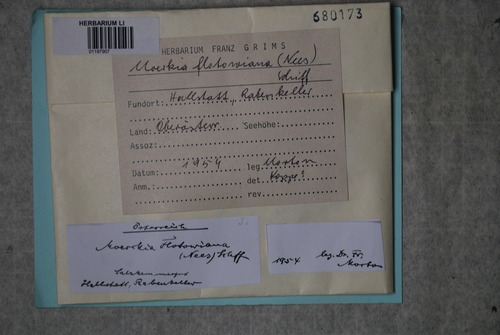 HERBARIUM LI
680173
HERBARIUM FRANZ GRIMS
Moerkia flotowiana (Nees)
Schiff
Fundort: Hallstatt, Rabenkeller
Land: Oberösterr Seehöhe:
Assoz:
Datum: 1954 leg. Morton
Anm. det. Koppe
rev.
Österreich
Moerckia Flotowiana
(Nees) Schiff
Salzkammergut
Hallstatt, Rabenkeller
leg. Dr. Fr.
1954 Morton